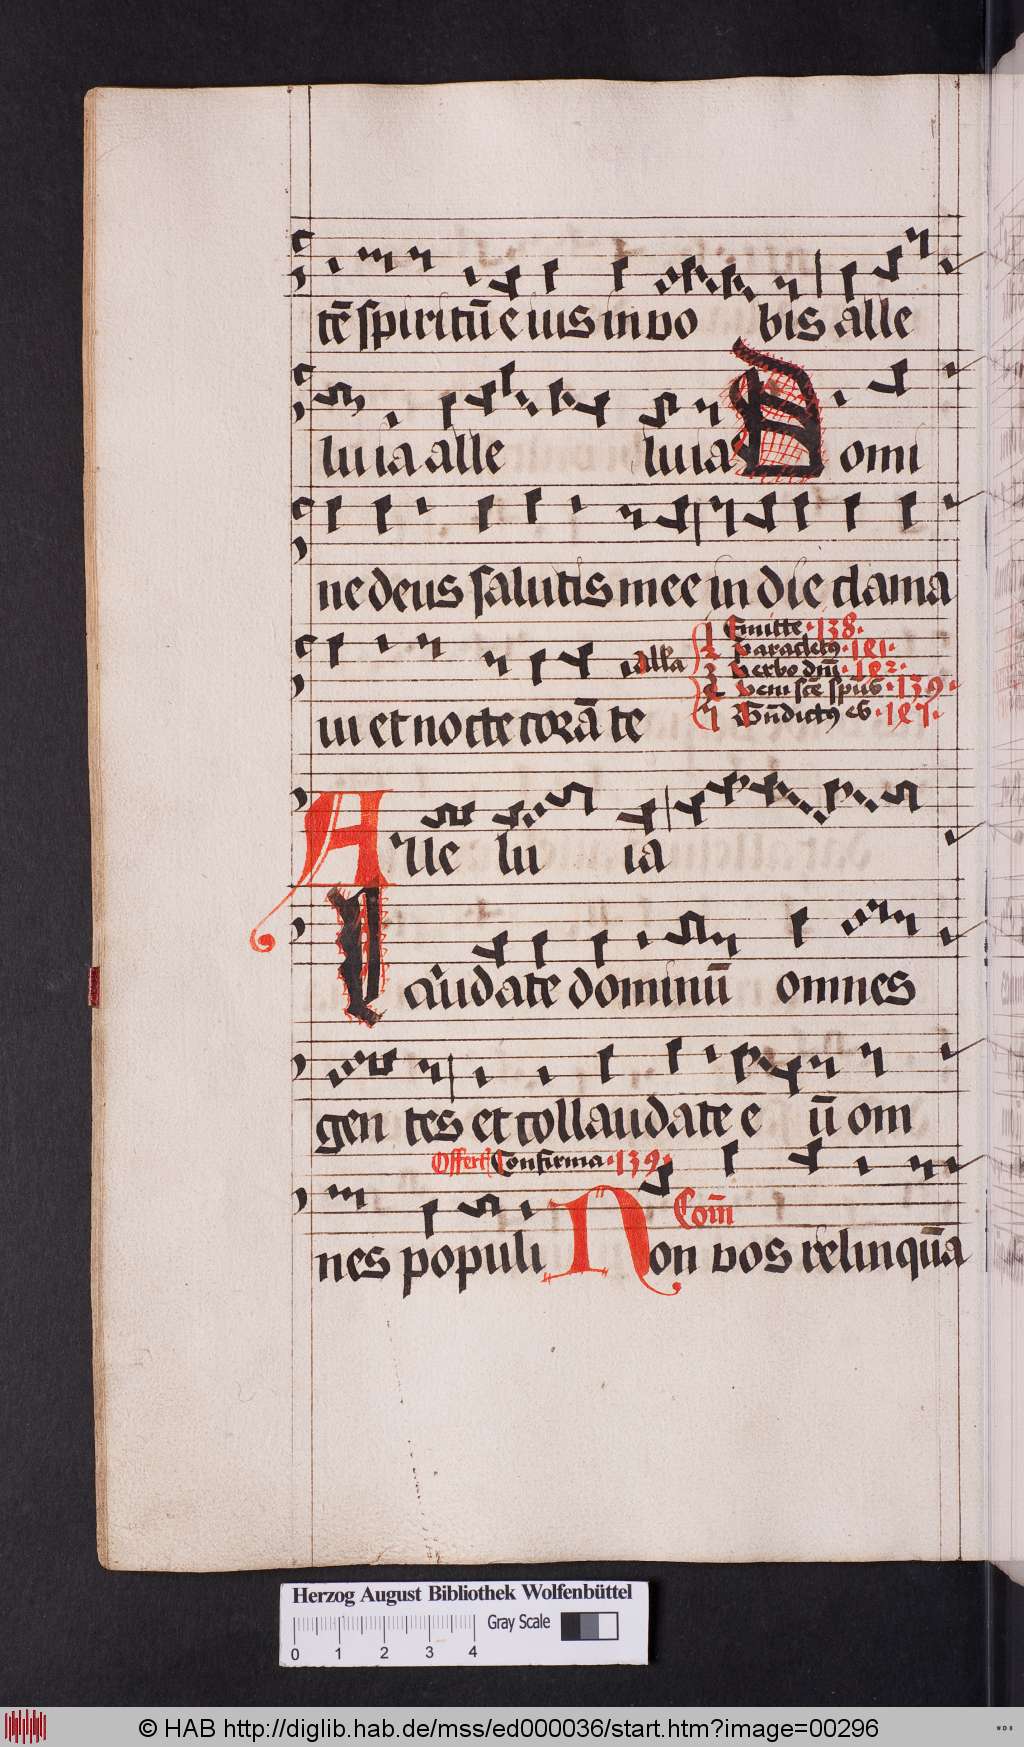 tē spiritū eius in vo bis alle
luia alle luia Domi
ne deus salutis mee in die clama
1 Emitte · 138 ·
2 Paraclet9 · 181 ·
alla 3 Verbo dnī · 182 ·
4 Veni scē spūs · 139 ·
ui et nocte corā te
5 Bn̄dict9 es · 187 ·
Alle lu ia
Laudate dominū omnes
gen tes et collaudate e ū om
Offert Confirma · 139 ·
Com̄
nes populi Non vos relinquā
Herzog August Bibliothek Wolfenbüttel
Gray Scale
0 1 2 3 4
© HAB http://diglib.hab.de/mss/ed000036/start.htm?image=00296